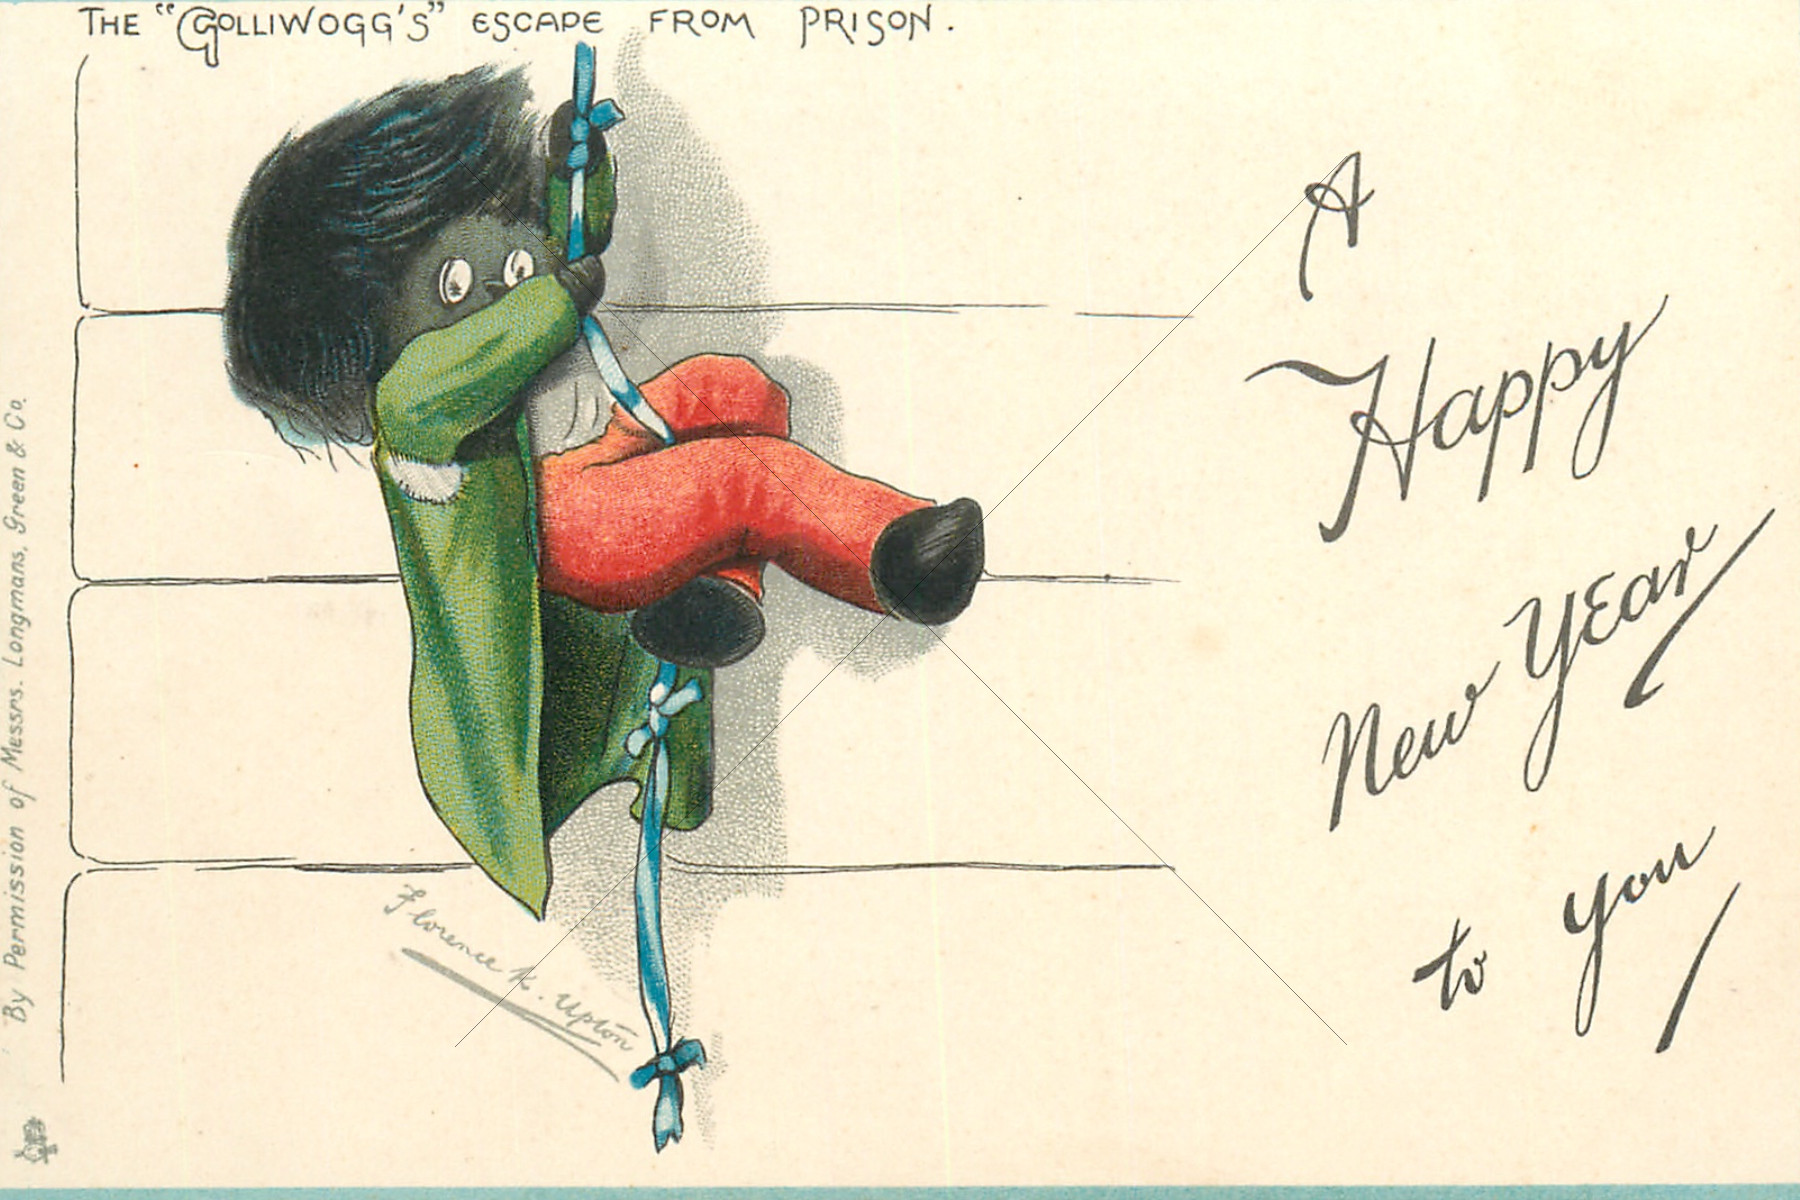 THE "GOLLIWOGG'S" ESCAPE FROM PRISON.
A
Happy
New Year
to you
Florence K. Upton
By Permission of Messrs. Longmans, Green & Co.